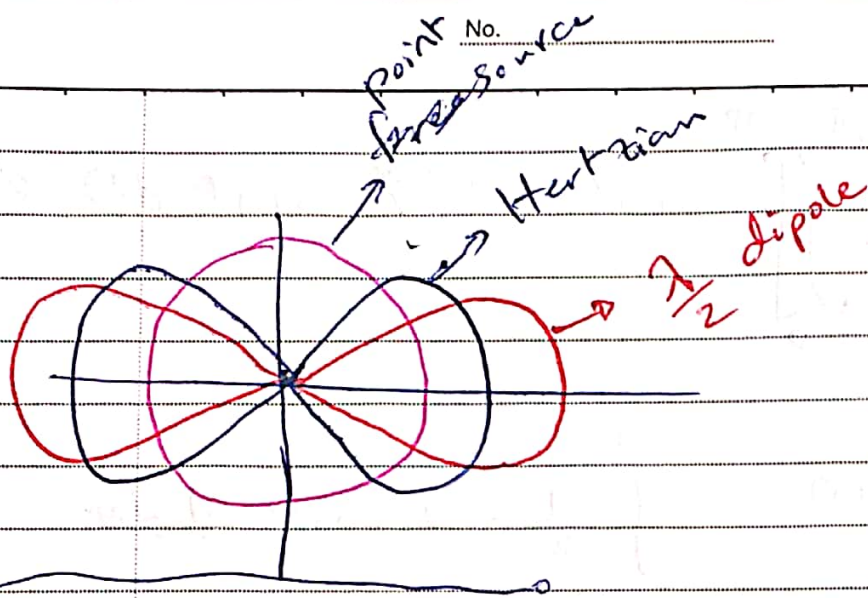 No.
point
source
Hertzian
λ/2 dipole